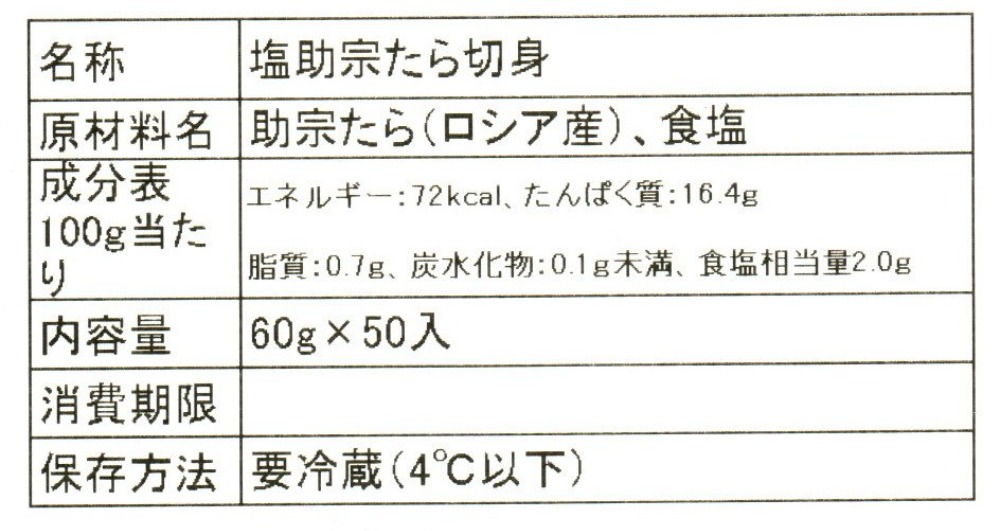 名称 塩助宗たら切身
原材料名 助宗たら(ロシア産)、食塩
成分表
100g当た
り
エネルギー:72kcal、たんぱく質:16.4g
脂質:0.7g、炭水化物:0.1g未満、食塩相当量2.0g
内容量 60g×50入
消費期限
保存方法 要冷蔵(4℃以下)